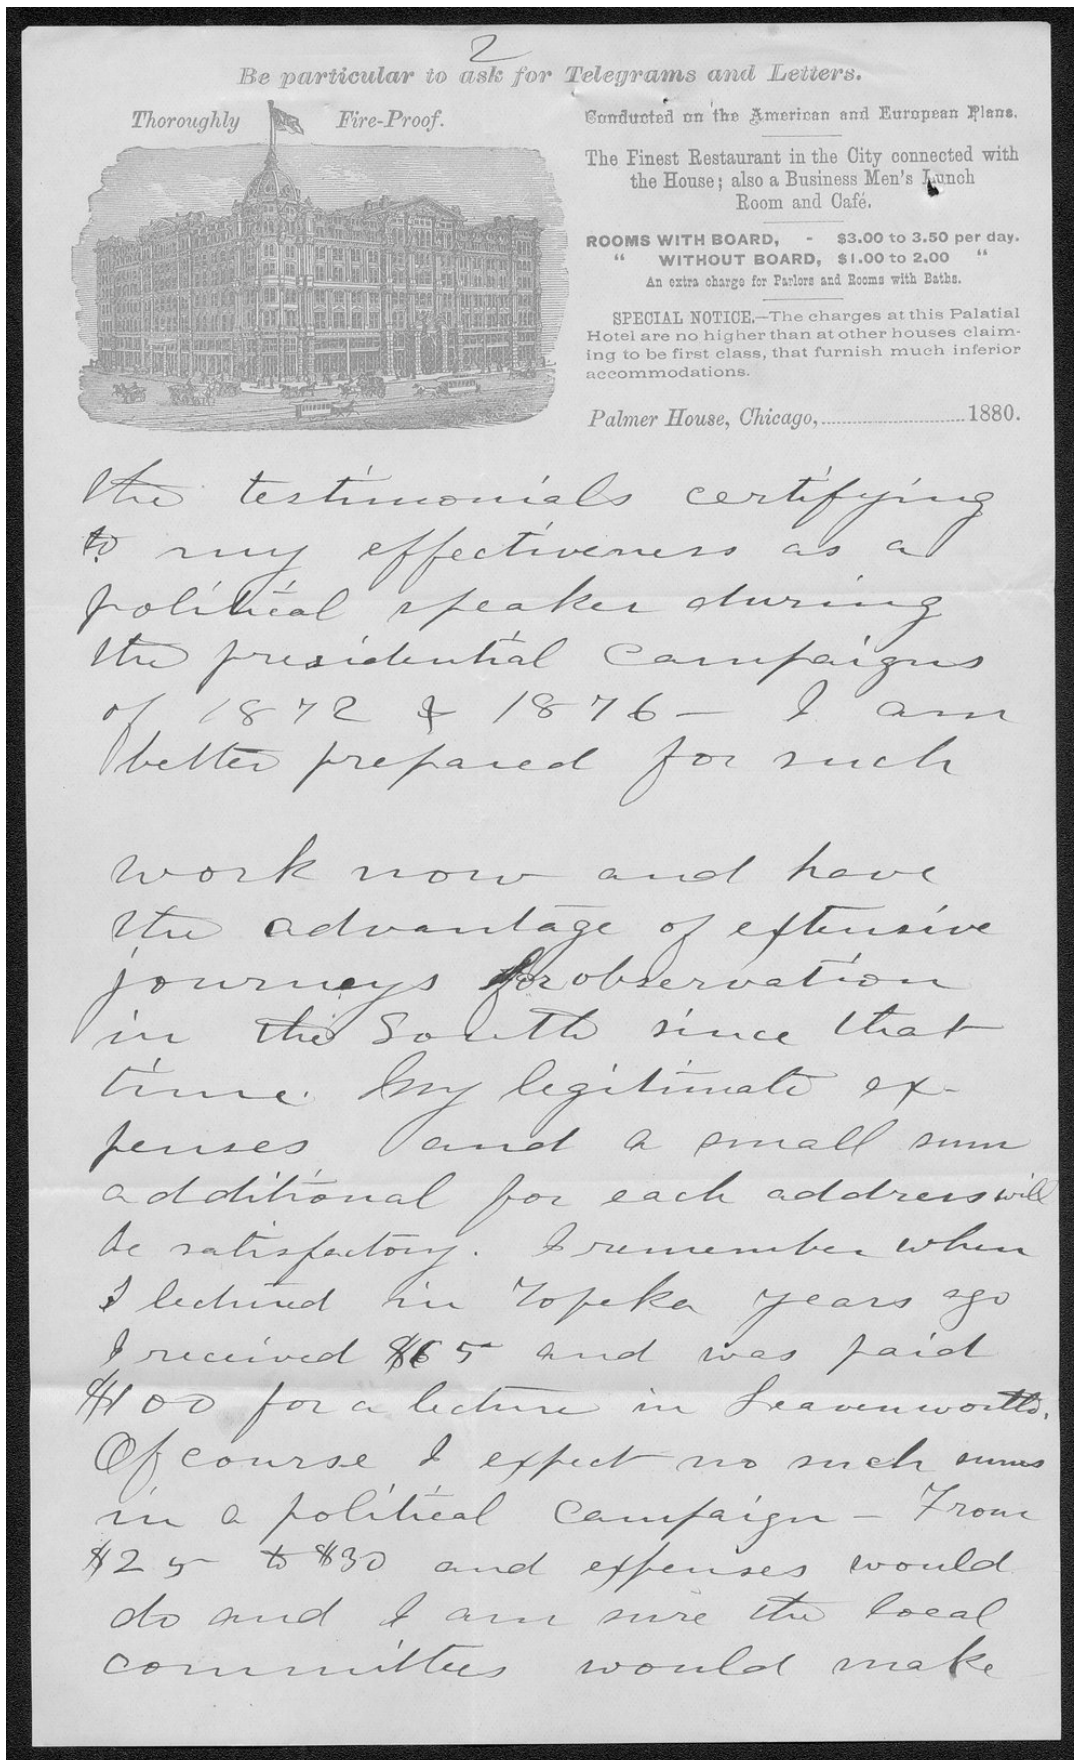 2
Be particular to ask for Telegrams and Letters.
Thoroughly Fire-Proof.
Conducted on the American and European Plans.
The Finest Restaurant in the City connected with
the House; also a Business Men's Lunch
Room and Café.
ROOMS WITH BOARD, - $3.00 to 3.50 per day.
" WITHOUT BOARD, $1.00 to 2.00 "
An extra charge for Parlors and Rooms with Baths.
SPECIAL NOTICE.—The charges at this Palatial
Hotel are no higher than at other houses claim-
ing to be first class, that furnish much inferior
accommodations.
Palmer House, Chicago, 1880.
the testimonials certifying
to my effectiveness as a
political speaker during
the presidential campaigns
of 1872 & 1876 — I am
better prepared for such
work now and have
the advantage of extensive
journeys for observation
in the South since that
time. My legitimate ex-
penses and a small sum
additional for each address will
be satisfactory. I remember when
I lectured in Topeka years ago
I received $65 and was paid
$100 for a lecture in Leavenworth.
Of course I expect no such sums
in a political campaign — From
$25 to $30 and expenses would
do and I am sure the local
committees would make